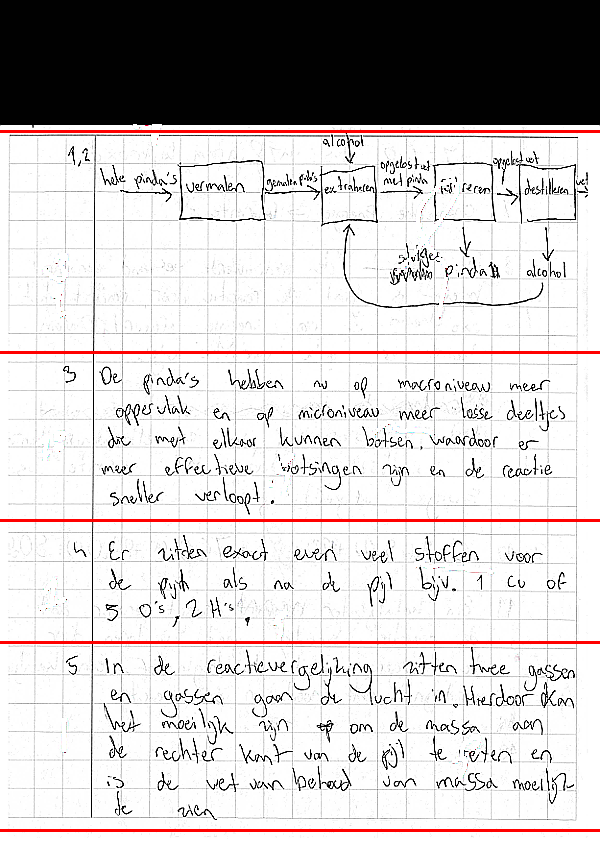 1,2
alcohol
hele pinda's
vermalen
gemalen pinda's
extraheren
opgelost vet
met pinda
filtreren
opgelost vet
destilleren
vet
stukjes
pinda
alcohol
3 De pinda's hebben nu op macroniveau meer
oppervlak en op microniveau meer losse deeltjes
die met elkaar kunnen botsen, waardoor er
meer effectieve botsingen zijn en de reactie
sneller verloopt.
4 Er zitten exact even veel stoffen voor
de pijl als na de pijl bijv. 1 Cu of
5 O's, 2 H's,
5 In de reactievergelijking zitten twee gassen
en gassen gaan de lucht in. Hierdoor kan
het moeilijk zijn om de massa aan
de rechter kant van de pijl te meten en
is de wet van behoud van massa moeilijk
te zien